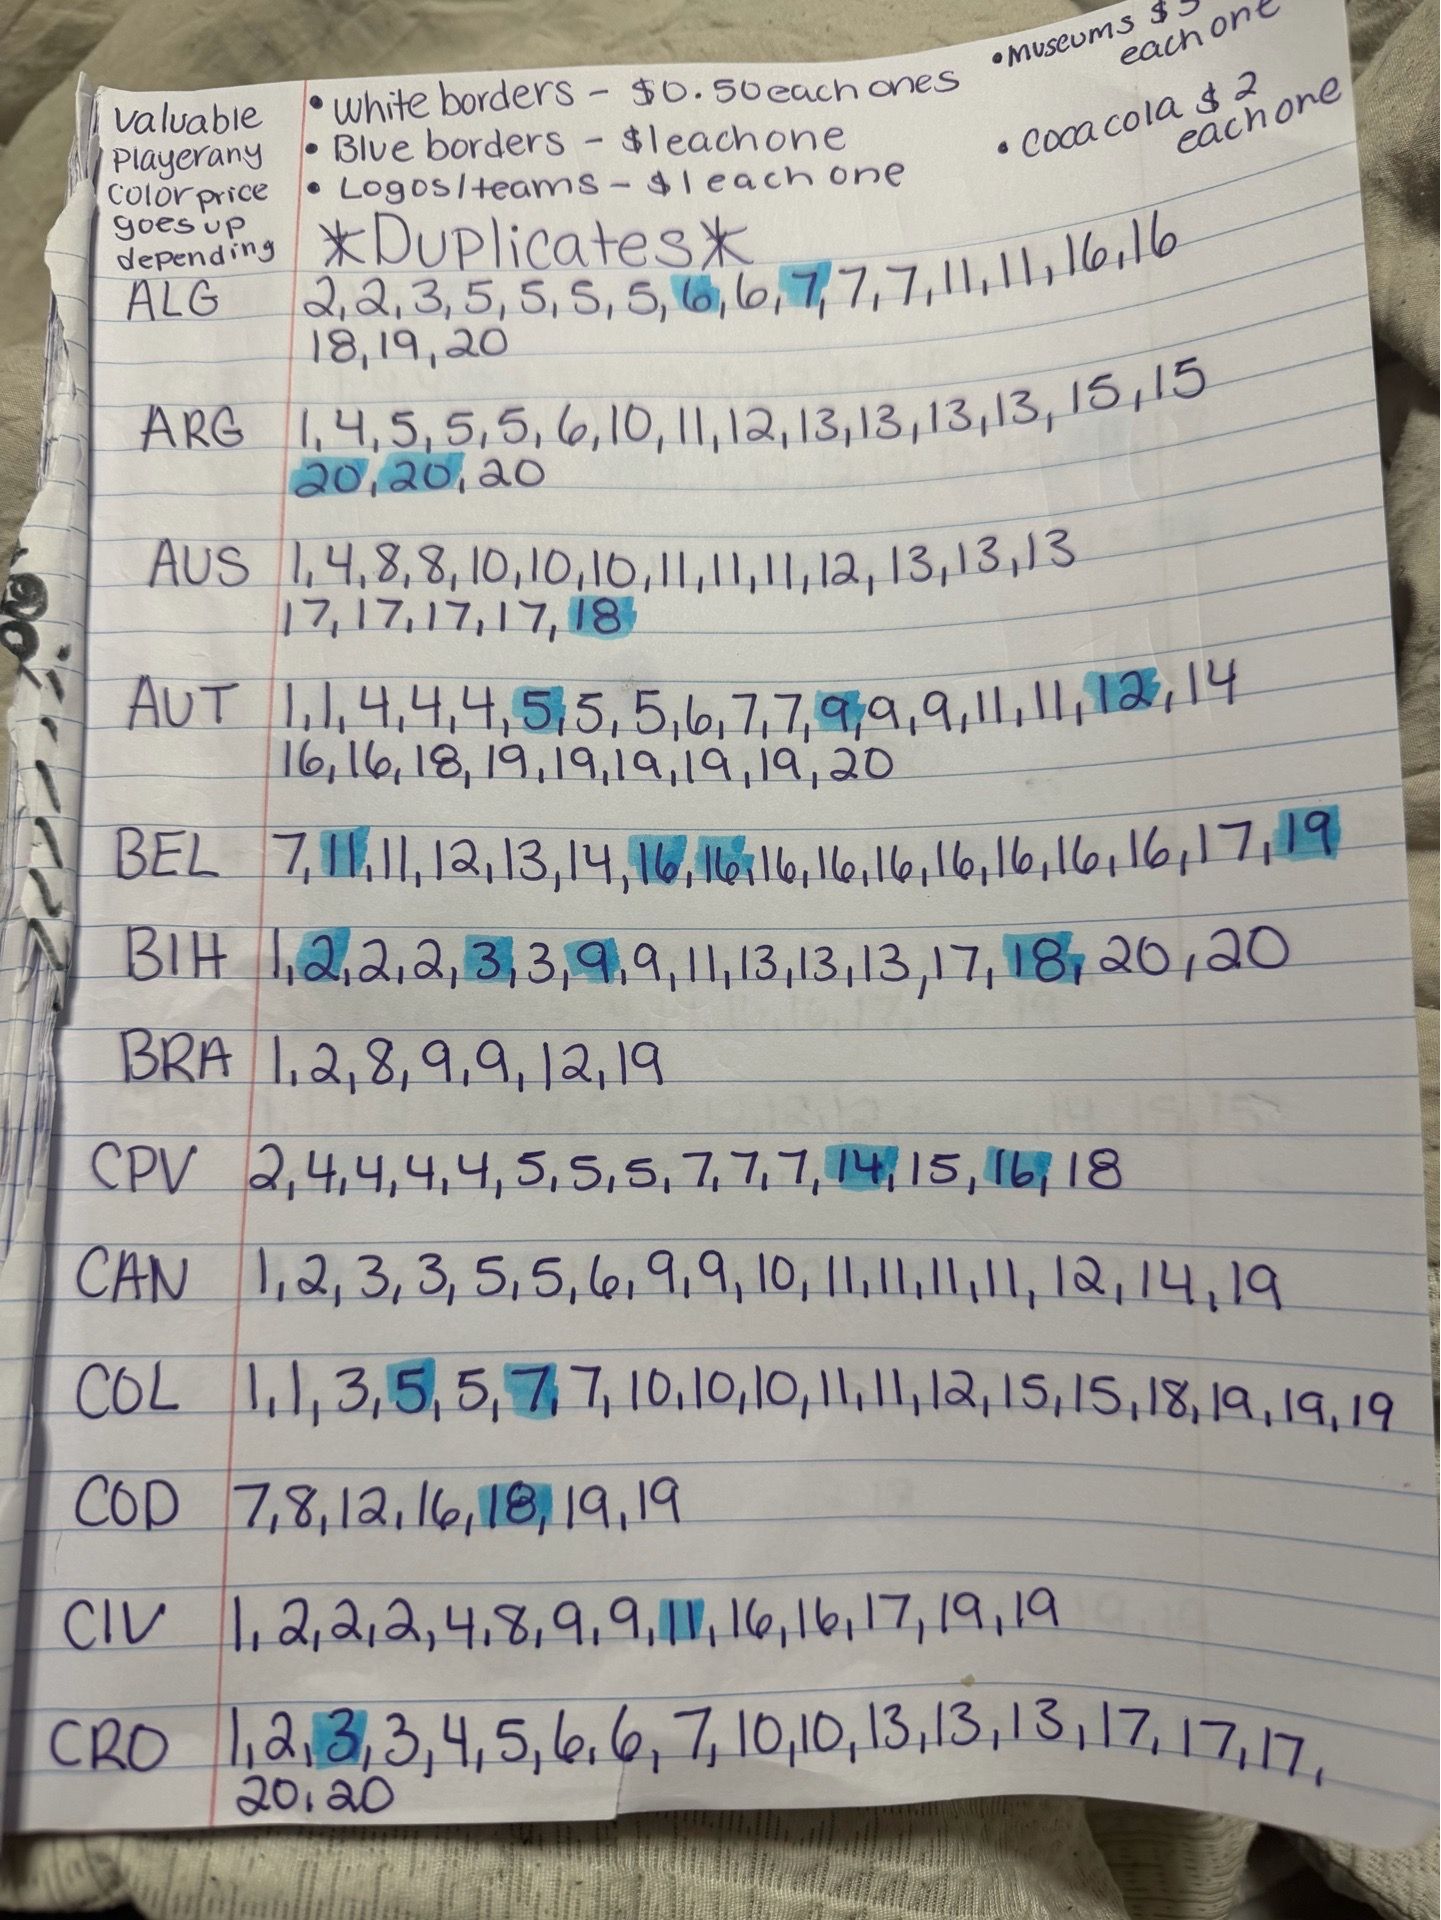 valuable
Playerany
color price
goes up
depending
• White borders - $0.50 each ones
• Blue borders - $1 each one
• Logos/teams - $1 each one
• museums $3
each one
• coca cola $2
each one
*Duplicates*
ALG 2,2,3,5,5,5,5,6,6,7,7,7,11,11,16,16
18,19,20
ARG 1,4,5,5,5,6,10,11,12,13,13,13,13,15,15
20,20,20
AUS 1,4,8,8,10,10,10,11,11,11,12,13,13,13
17,17,17,17,18
AUT 1,1,4,4,4,5,5,5,6,7,7,9,9,9,11,11,12,14
16,16,18,19,19,19,19,19,20
BEL 7,11,11,12,13,14,16,16,16,16,16,16,16,16,16,17,19
BIH 1,2,2,2,3,3,9,9,11,13,13,13,17,18,20,20
BRA 1,2,8,9,9,12,19
CPV 2,4,4,4,4,5,5,5,7,7,7,14,15,16,18
CAN 1,2,3,3,5,5,6,9,9,10,11,11,11,11,12,14,19
COL 1,1,3,5,5,7,7,10,10,10,11,11,12,15,15,18,19,19,19
COD 7,8,12,16,18,19,19
CIV 1,2,2,2,4,8,9,9,11,16,16,17,19,19
CRO 1,2,3,3,4,5,6,6,7,10,10,13,13,13,17,17,17,
20,20